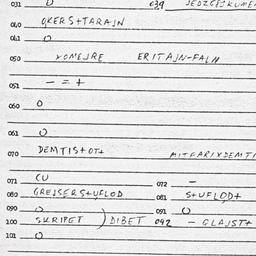 031 O 039 JEDZCEJKUME
040 QKERS+TARAJN
041 O
050 YOMEJRE ERITAJN-FALN
051 - = +
060 O
061 O
070 DEMTIS+OT+ MITFARIXDEMTI
071 CU 072 -
080 GREJSERS+UFLOD 081 S+UFLOD+
090 O 091 O
100 SKRIPET ) DIBET 092 - GLAJST+
101 O